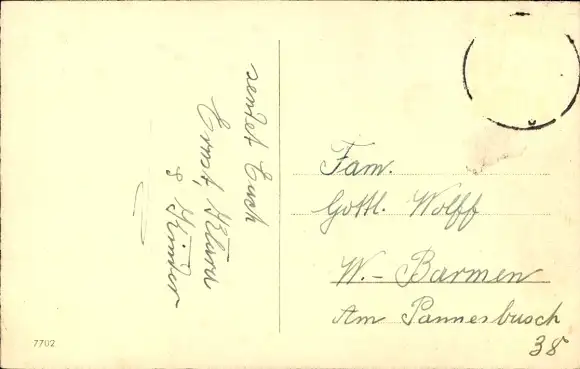 sendet Euch
Ernst, Klara
& Kinder
Fam.
Gottl. Wolff
W.-Barmen
Am Pannesbusch
38
7702